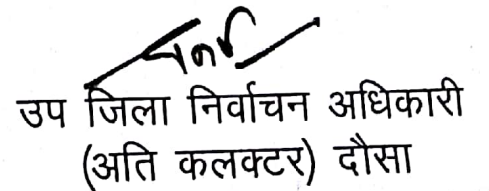 उप जिला निर्वाचन अधिकारी
(अति कलक्टर) दौसा